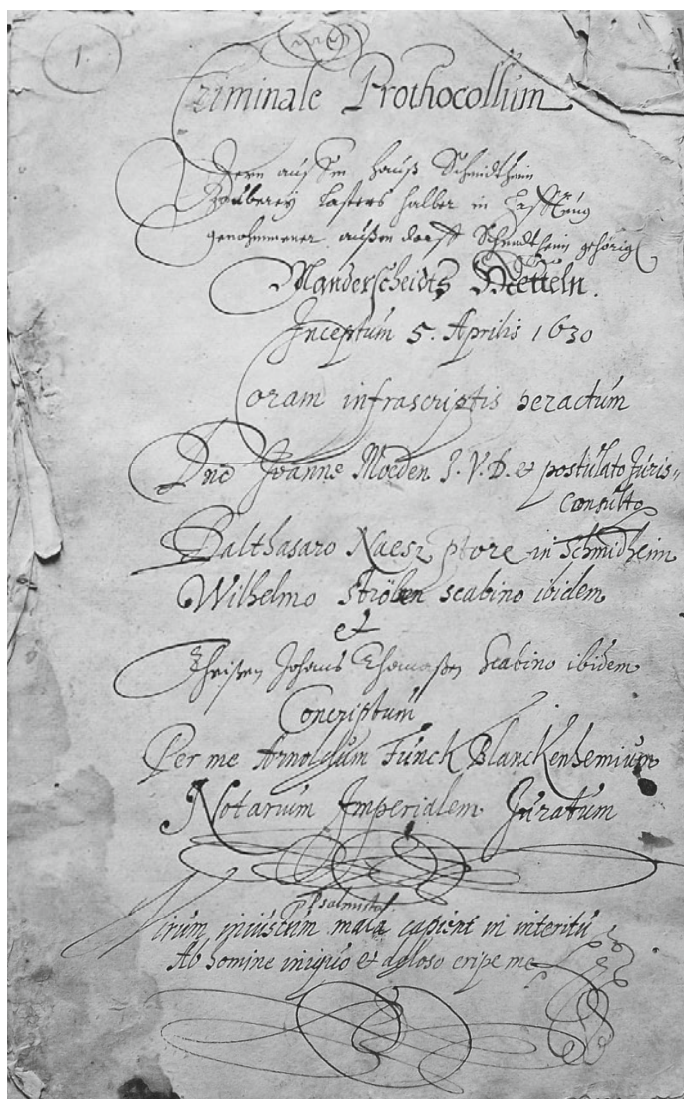 1.
Criminale Prothocollum
Dern auß dem Hauß Schmidtheim
Zauberey lasters halber in Hafftung
genohmmener außem dorff Schmidtheim gehörig
Manderscheidts Ketteln.
Inceptum 5. Aprilis 1630
Coram infrascriptis peractum
Dno Joanne Moeden J. V. D. et postulato Juris-
Consulto
Balthasaro Naesz ptore in Schmidheim
Wilhelmo Ströben scabino ibidem
et
Theißen Johans Thomaßen Scabino ibidem
Conscriptum
Per me Arnoldum Funck Blanckenhemium
Notarium Imperialem Juratum
Psalmista
Virum iniustum mala capient in interitu
Ab homine iniquo et doloso eripe me